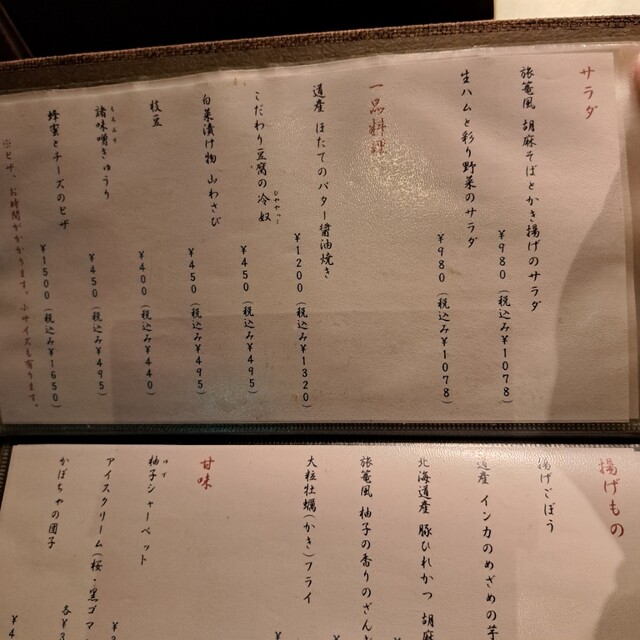 サラダ
旅篭風 胡麻そばとかき揚げのサラダ ¥980(税込み¥1078)
生ハムと彩り野菜のサラダ ¥980(税込み¥1078)
一品料理
道産 ほたてのバター醤油焼き ¥1200(税込み¥1320)
こだわり豆腐の冷奴 ¥450(税込み¥495)
白菜漬け物 山わさび ¥450(税込み¥495)
枝豆 ¥400(税込み¥440)
諸味噌きゅうり ¥450(税込み¥495)
蜂蜜とチーズのピザ ¥1500(税込み¥1650)
※ピザ、お時間がかかります。小サイズも有ります。
揚げもの
揚げごぼう
道産 インカのめざめの芋
北海道産 豚ひれかつ 胡麻
旅篭風 柚子の香りのざん
大粒牡蠣(かき)フライ ¥
甘味
柚子シャーベット ¥
アイスクリーム(桜・黒ゴマ 各¥
かぼちゃの団子 ¥4